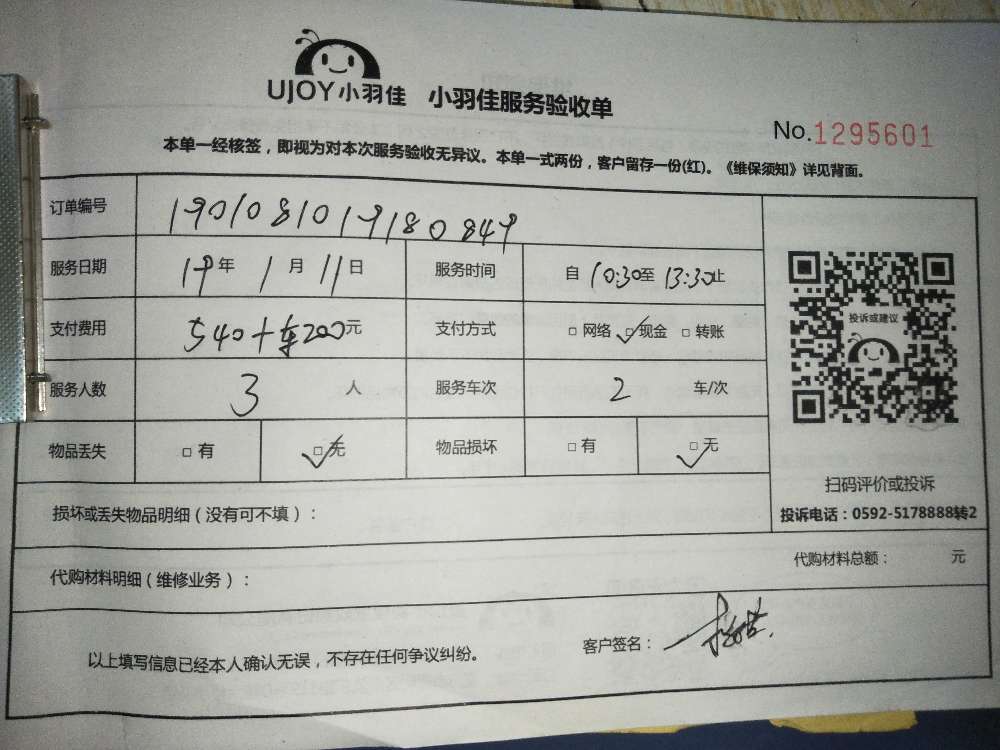 UJOY小羽佳 小羽佳服务验收单
No.1295601
本单一经核签，即视为对本次服务验收无异议。本单一式两份，客户留存一份(红)。《维保须知》详见背面。
订单编号 190108101918 0849
服务日期 19年 1月 11日 服务时间 自 10:30至 13:30止
支付费用 540+车200元 支付方式 □网络 ☑现金 □转账
服务人数 3 人 服务车次 2 车/次
物品丢失 □有 ☑无 物品损坏 □有 ☑无
投诉或建议
扫码评价或投诉
投诉电话：0592-5178888转2
损坏或丢失物品明细（没有可不填）：
代购材料明细（维修业务）：
代购材料总额： 元
以上填写信息已经本人确认无误，不存在任何争议纠纷。
客户签名：